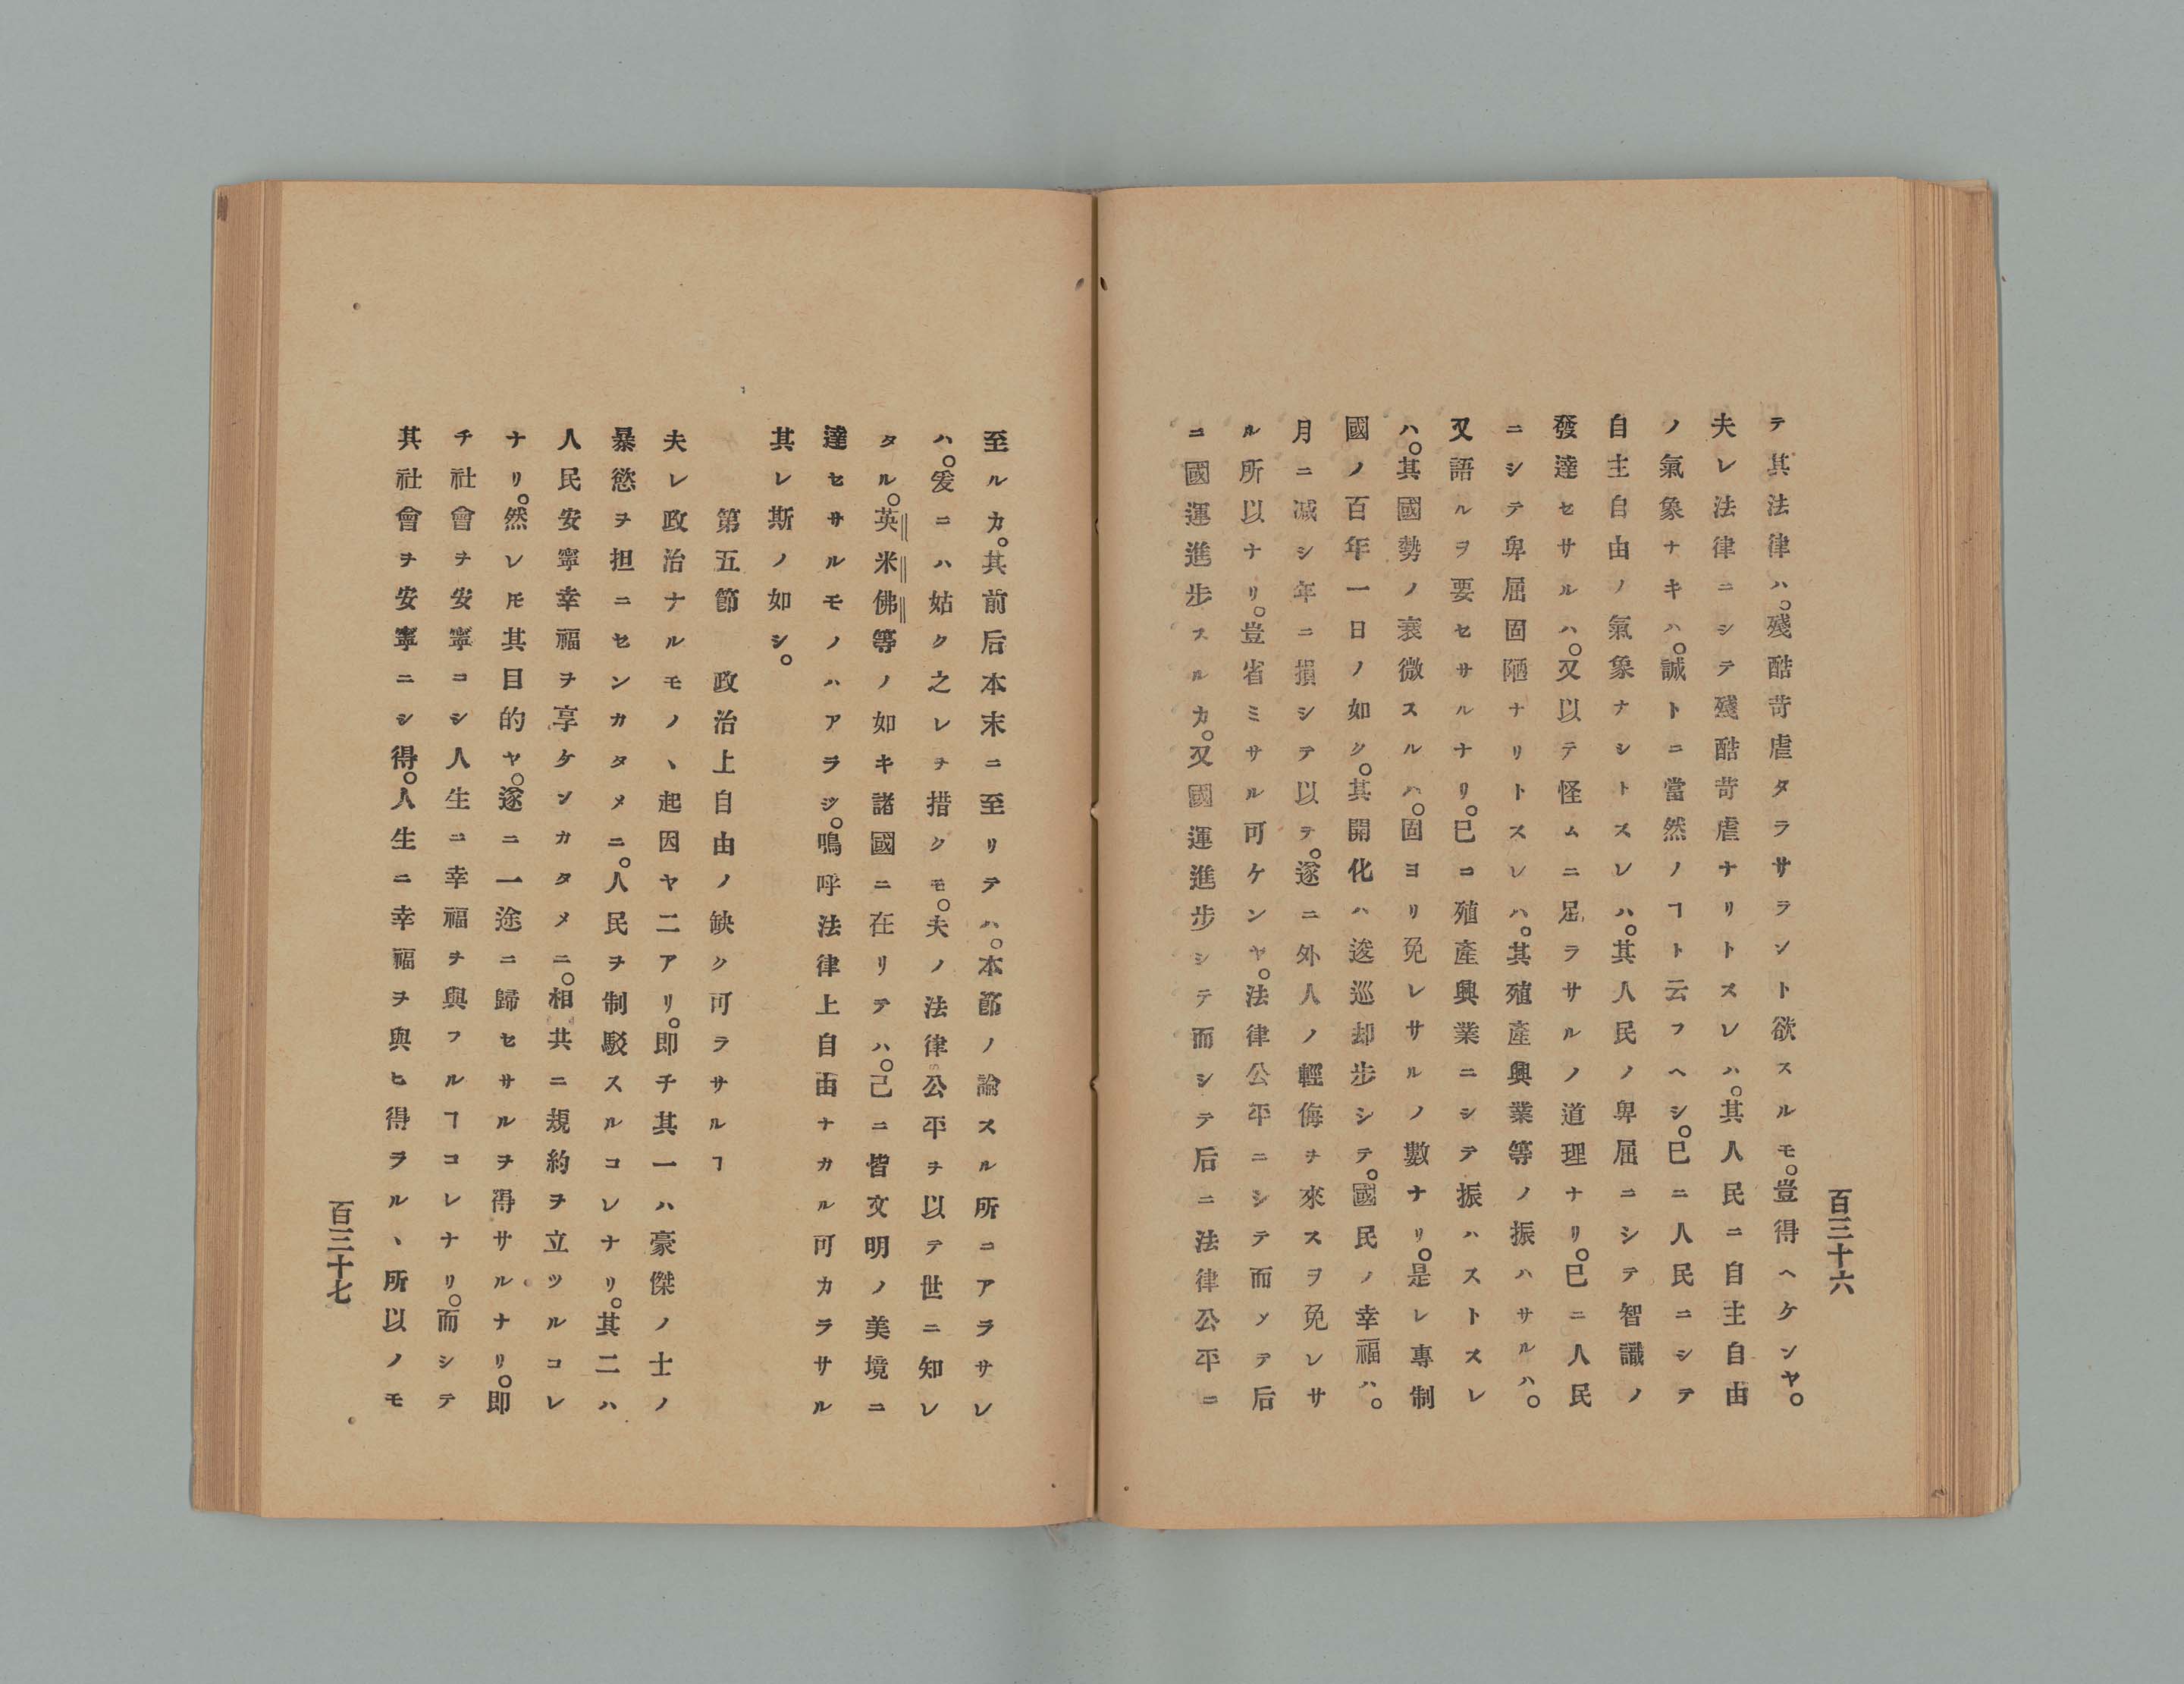 テ其法律ハ。殘酷苛虐タラサラント欲スルモ。豈得ヘケンヤ。
夫レ法律ニシテ殘酷苛虐ナリトスレハ。其人民ニ自主自由
ノ氣象ナキハ。誠トニ當然ノヿト云フヘシ。巳ニ人民ニシテ
自主自由ノ氣象ナシトスレハ。其人民ノ卑屈ニシテ智識ノ
發達セサルハ。又以テ怪ムニ足ラサルノ道理ナリ。巳ニ人民
ニシテ卑屈固陋ナリトスレハ。其殖產興業等ノ振ハサルハ。
又語ルヲ要セサルナリ。巳ニ殖產興業ニシテ振ハストスレ
ハ。其國勢ノ衰微スルハ。固ヨリ免レサルノ數ナリ。是レ專制
國ノ百年一日ノ如ク。其開化ハ逡巡却歩シテ。國民ノ幸福ハ。
月ニ减シ年ニ損シテ以テ。遂ニ外人ノ輕侮ヲ來スヲ免レサ
ル所以ナリ。豈省ミサル可ケンヤ。法律公平ニシテ而メテ后
ニ國運進步スルカ。又國運進步シテ而シテ后ニ法律公平ニ
百三十六
至ルカ。其前后本末ニ至リテハ。本節ノ論スル所ニアラサレ
ハ。爰ニハ姑ク之レヲ措クモ。夫ノ法律公平ヲ以テ世ニ知レ
タル。英米佛等ノ如キ諸國ニ在リテハ。己ニ皆文明ノ美境ニ
達セサルモノハアラシ。嗚呼法律上自由ナカル可カラサル
其レ斯ノ如シ。
第五節　政治上自由ノ缺ク可ラサルヿ
夫レ政治ナルモノヽ起因ヤ二アリ。即チ其一ハ豪傑ノ士ノ
暴慾ヲ担ニセンカタメニ。人民ヲ制馭スルコレナリ。其二ハ
人民安寧幸福ヲ享ケンカタメニ。相共ニ規約ヲ立ツルコレ
ナリ。然レ𪜈其目的ヤ。遂ニ一途ニ歸セサルヲ得サルナリ。即
チ社會ヲ安寧ニシ人生ニ幸福ヲ與フルヿコレナリ。而シテ
其社會ヲ安寧ニシ得。人生ニ幸福ヲ與ヒ得ラルヽ所以ノモ
百三十七